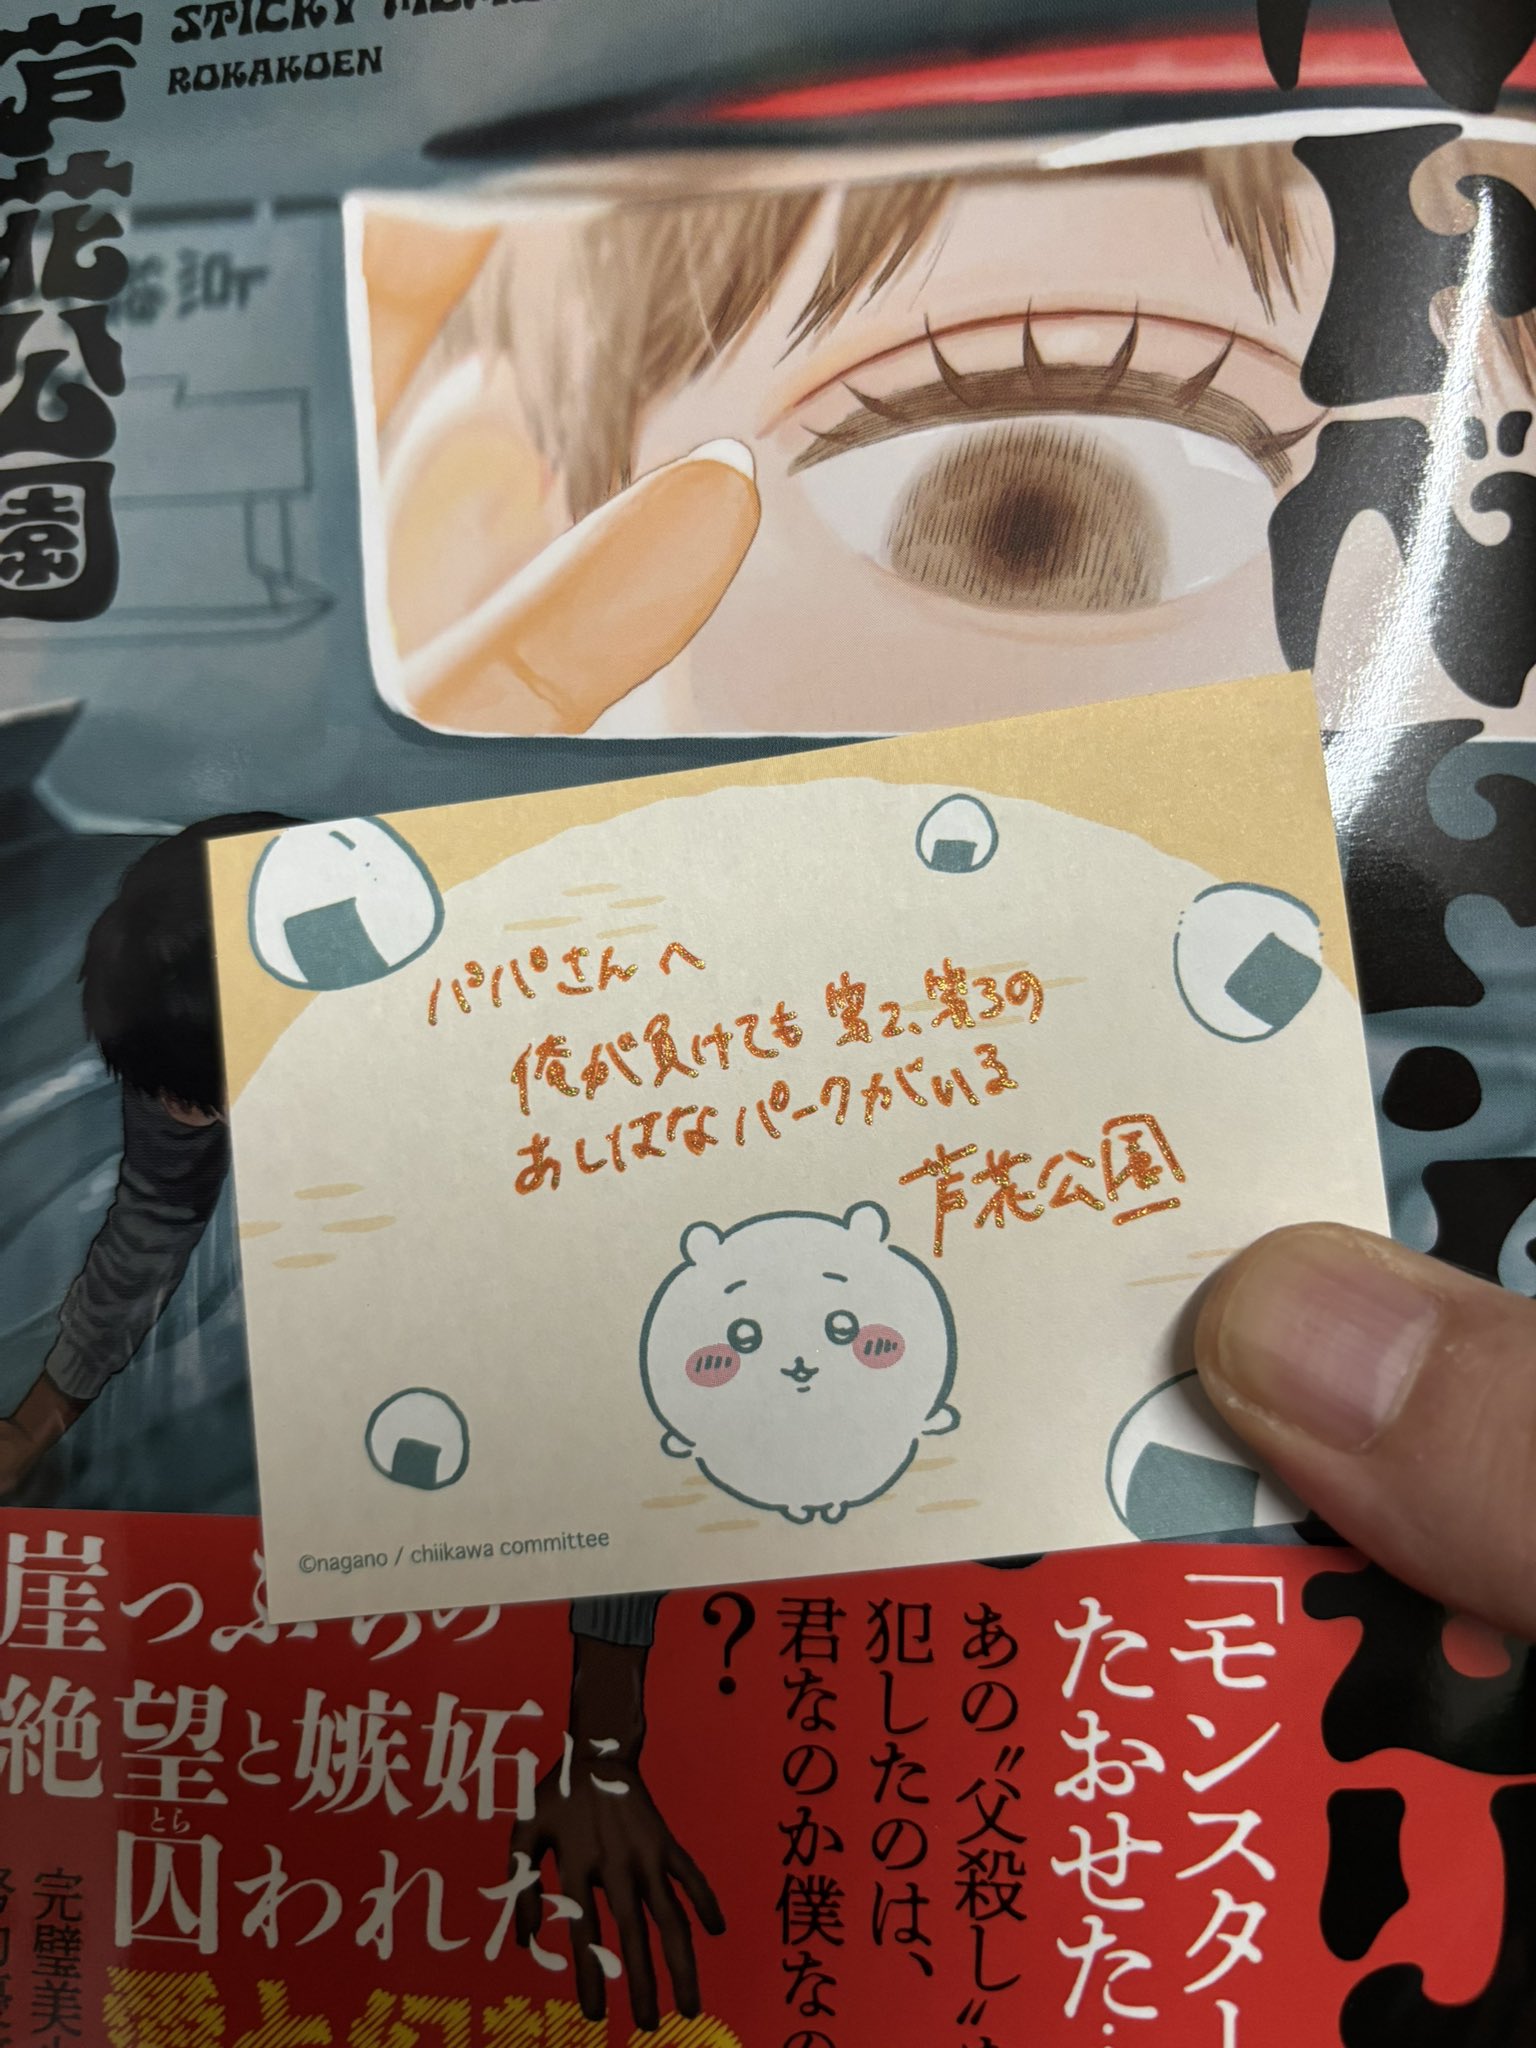 STICKY
ROKAKOEN
芦花公園
パパさんへ
俺が負けても第2、第3の
あしばなパークがいる
芦花公園
©nagano / chiikawa committee
「モンスター
たおせた
あの〝父殺し〟
犯したのは、
君なのか僕なの
？
崖っぷちの
絶望と嫉妬に
囚われた、
とら
完璧美